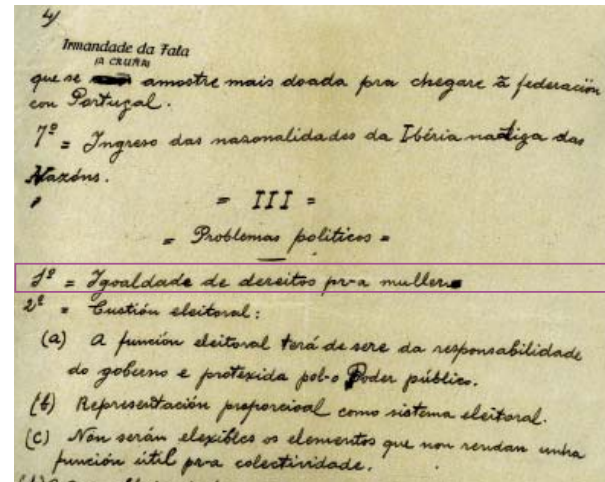 4)
Irmandade da Fala
(A CRUÑA)
que se amostre mais doada pra chegare â federación
con Portugal.
7º = Ingreso das nazonalidades da Ibéria na Liga das
Nazóns.
= III =
= Problemas politicos =
1º = Igoaldade de dereitos pr-a muller.
2º = Custión eleitoral:
(a) A función eleitoral terá de sere da responsabilidade
do goberno e protexida pol-o Poder público.
(b) Representación proporcioal como sistema eleitoral.
(C) Non serán elexibles os elementos que non rendan unha
función útil pr-a colectividade.